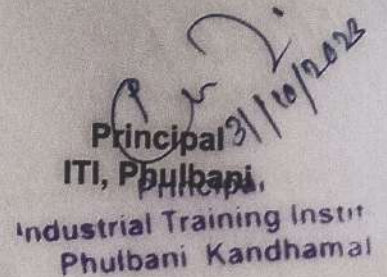 31/10/2023
Principal
ITI, Phulbani
Principal
Industrial Training Instit
Phulbani Kandhamal